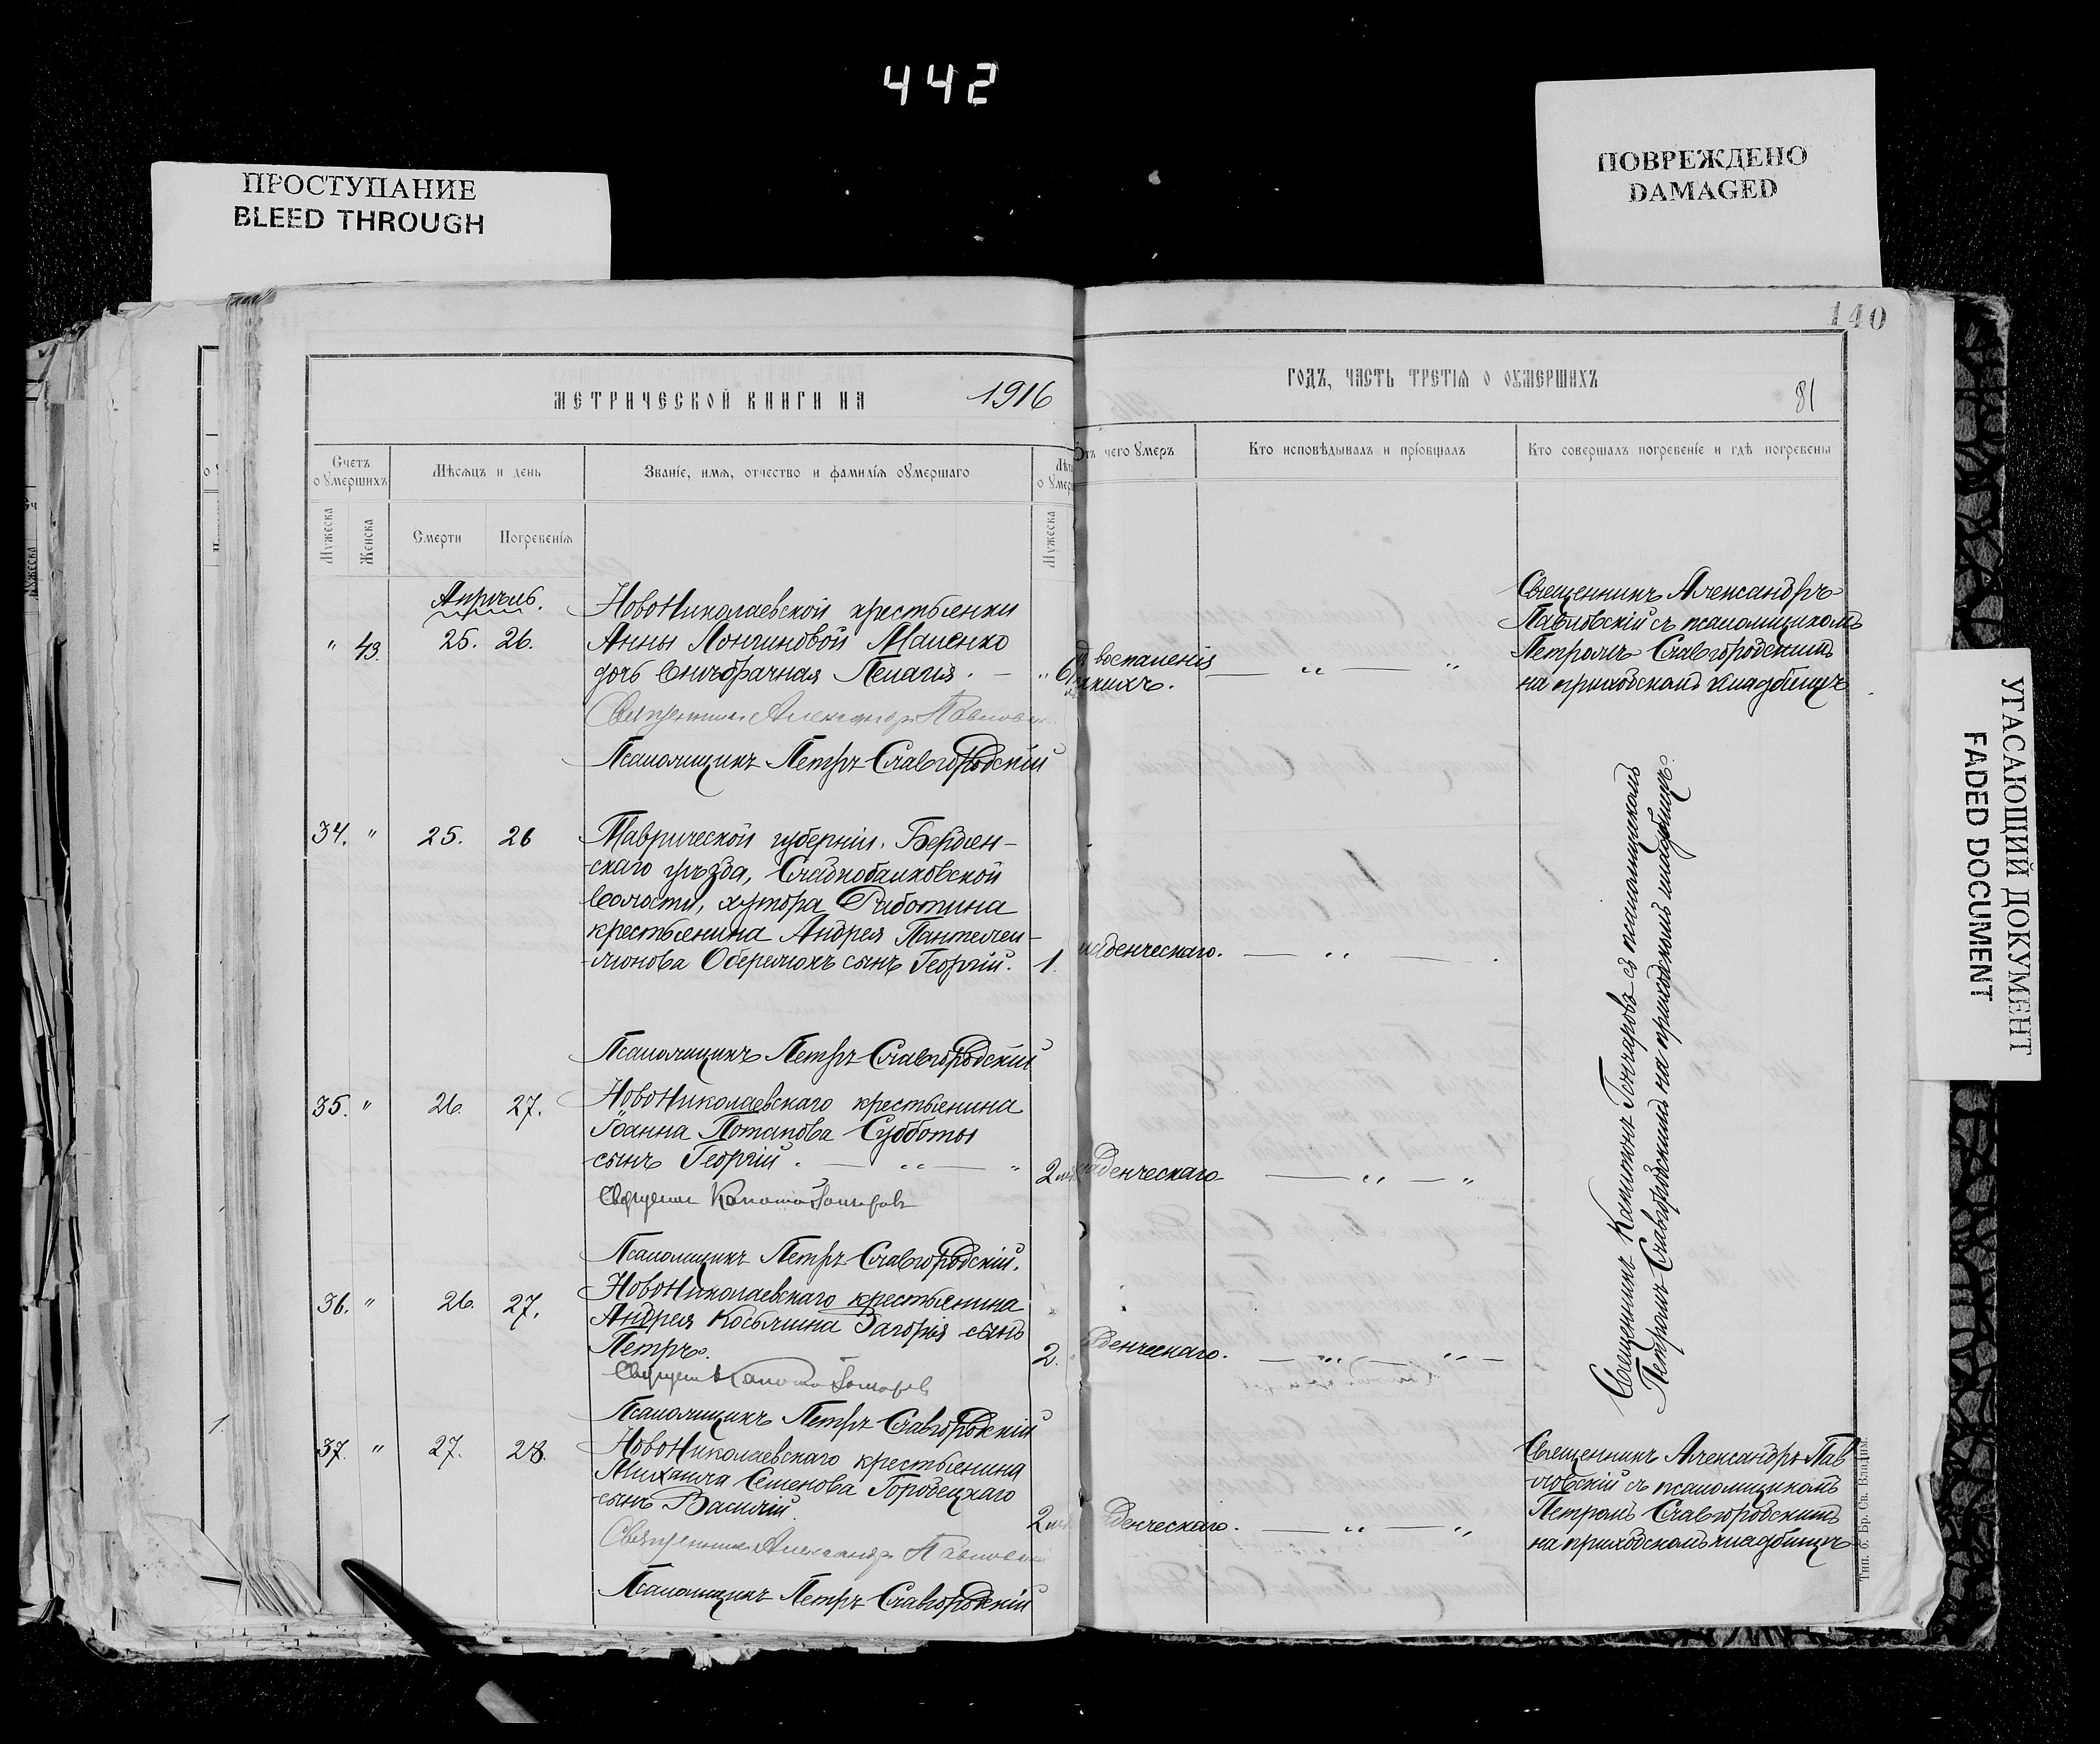 442
ПРОСТУПАНИЕ
BLEED THROUGH
ПОВРЕЖДЕНО
DAMAGED
УГАСАЮЩИЙ ДОКУМЕНТ
FADED DOCUMENT
140
МЕТРИЧЕСКОЙ КНИГИ НА 1916
ГОДЪ, ЧАСТЬ ТРЕТІѦ О ОУМЕРШИХЪ
81
Счетъ оумершихъ
Мѣсяцъ и день
Званіе, имя, отчество и фамилія оумершаго
Отъ чего умеръ
Кто исповѣдывалъ и пріобщалъ
Кто совершалъ погребеніе и гдѣ погребены
Мужеска
Женска
Смерти
Погребенія
Мужеска
Апрѣль.
" 43. 25. 26.
НовоНиколаевской крестьянки
Анны Лонгиновой Маценко
дочь внѣбрачная Пелагія. —
воспаленія
легкихъ.
Священникъ Александръ
Павловскій съ псаломщикомъ
Петромъ Славгородскимъ
на приходскомъ кладбищѣ
Священникъ Александръ Павловскій
Псаломщикъ Петръ Славгородскій
34. " 25. 26
Таврической губерніи. Бердян-
-скаго уѣзда, Сладкобалковской
волости, хутора Работина
крестьянина Андрея Пантелеи-
-монова Оберемокъ сынъ Георгій. 1.
младенческаго.
Псаломщикъ Петръ Славгородскій
35. " 26. 27.
НовоНиколаевскаго крестьянина
Іоанна Потапова Субботы
сынъ Георгій.
2
младенческаго
Священникъ Капитонъ Гончаровъ
Псаломщикъ Петръ Славгородскій.
36. " 26. 27.
НовоНиколаевскаго крестьянина
Андрея Косьмина Загорія сынъ
Петръ.
2.
младенческаго.
Священникъ Капитонъ Гончаровъ
Псаломщикъ Петръ Славгородскій
Священникъ Капитонъ Гончаровъ съ псаломщикомъ
Петромъ Славгородскимъ на приходскомъ кладбищѣ.
37. " 27. 28.
НовоНиколаевскаго крестьянина
Михаила Семенова Городецкаго
сынъ Василій.
2
младенческаго.
Священникъ Александръ Пав
-ловскій съ псаломщикомъ
Петромъ Славгородскимъ
на приходскомъ кладбищѣ
Священникъ Александръ Павловскій
Псаломщикъ Петръ Славгородскій
Тип. Бр. Св. Владим.